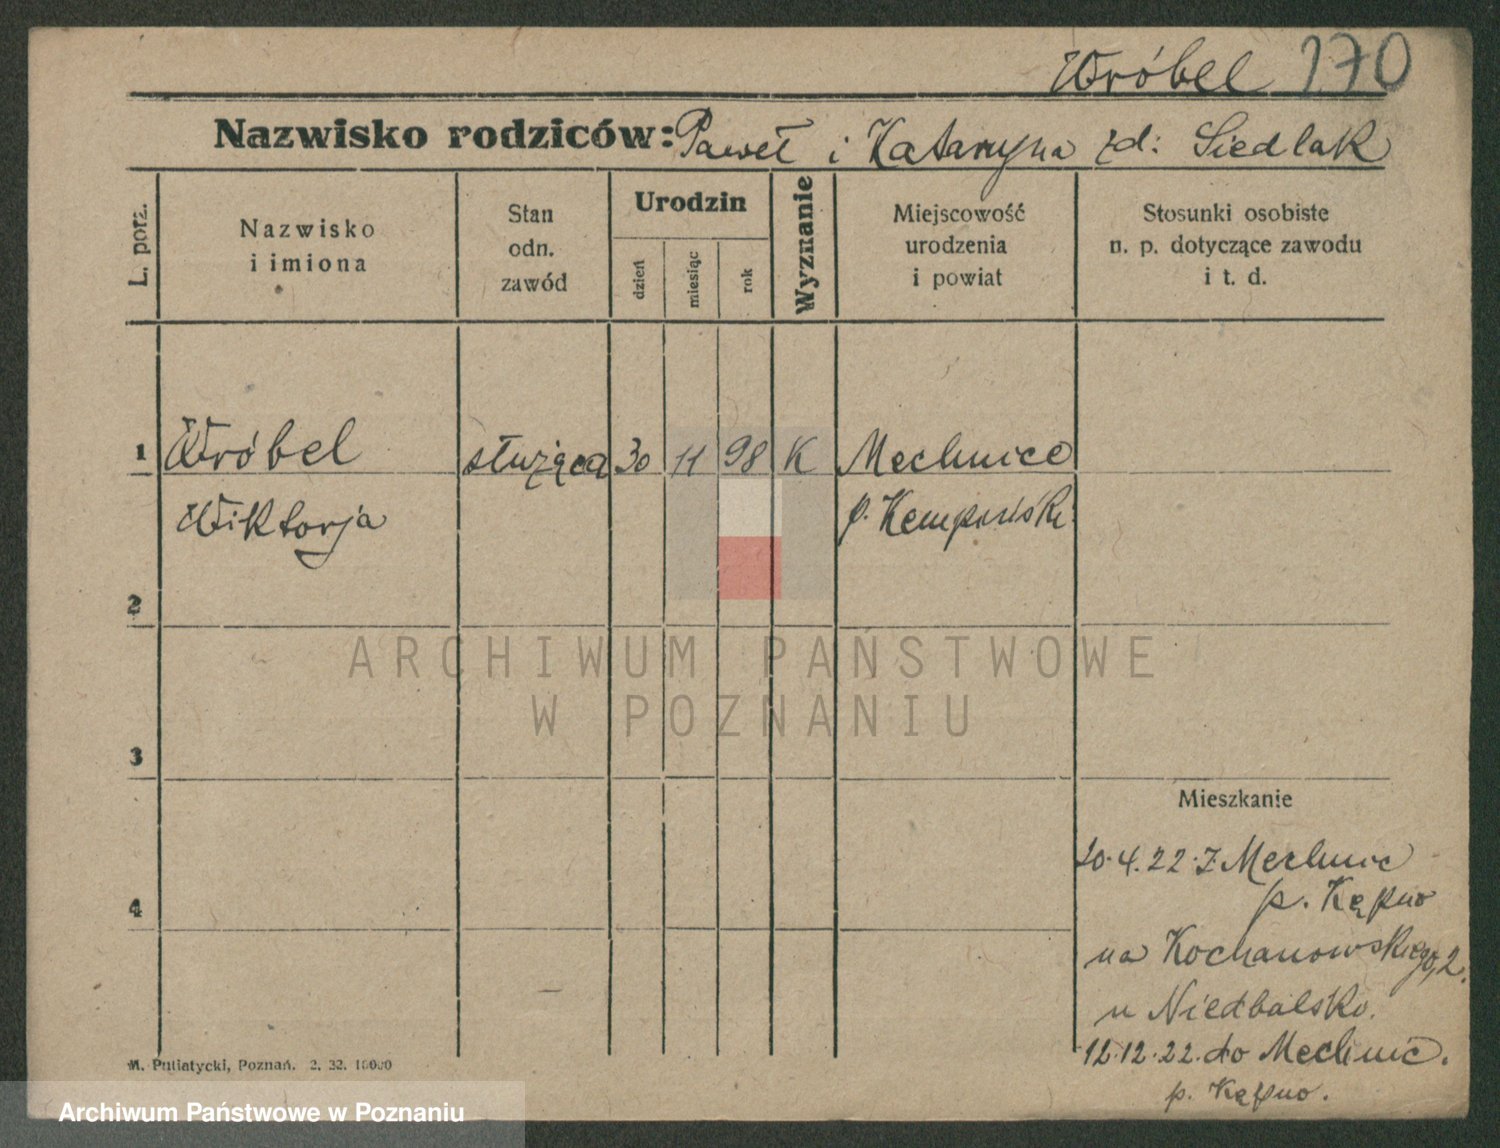 Wróbel 170
Nazwisko rodziców: Paweł i Katarzyna zd: Siedlak
L. porz.
Nazwisko
i imiona
Stan
odn.
zawód
Urodzin
dzień
miesiąc
rok
Wyznanie
Miejscowość
urodzenia
i powiat
Stosunki osobiste
n. p. dotyczące zawodu
i t. d.
1 Wróbel służąca 30 11 98 K Mechnice
Wiktorja p. Kempiński
2
3
4
Mieszkanie
20.4.22. z Mechnic
p. Kępno
na Kochanowskiego, 2.
u Niedbalsko.
12.12.22. do Mechnic.
p. Kępno.
M. Putiatycki, Poznań. 2. 32. 10000
ARCHIWUM PAŃSTWOWE
W POZNANIU
Archiwum Państwowe w Poznaniu